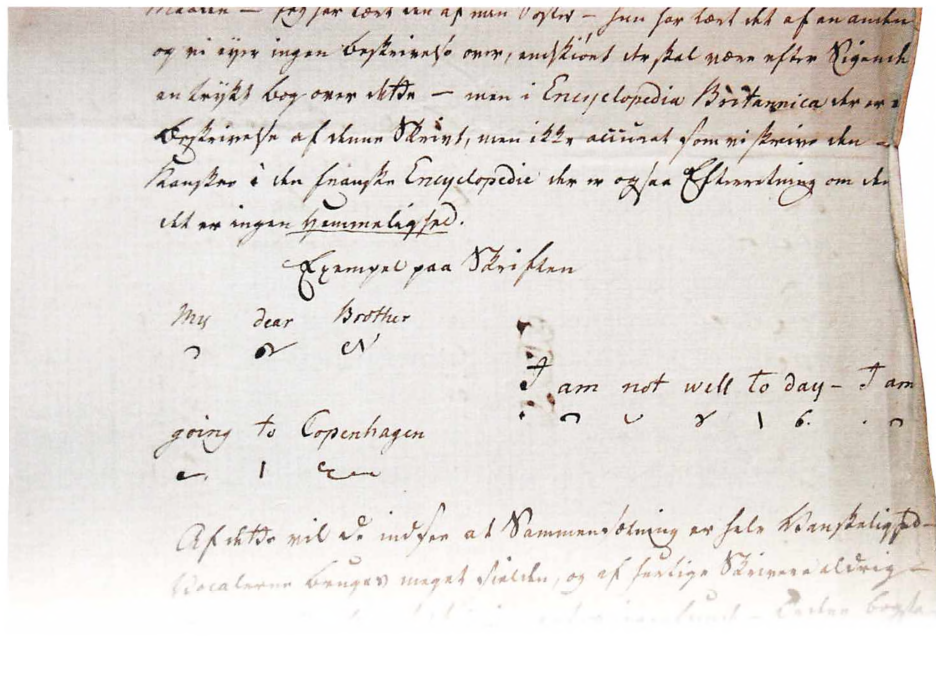 Maaten — jeg har lært den af min Søster — hun har lært det af en anden
og vi ejer ingen Beskrivelse over, endskiönt der skal være efter Sigende
en trykt bog over dette — men i Encyclopedia Britannica der er
Beskrivelse af denne Skrivt, men ikke accurat som vi skrive den —
kanskee i den franske Encyclopedie der er ogsaa Efterretning om den
det er ingen Hemmelighed.
Exempel paa Skriften
My dear Brother
I am not well to day — I am
going to Copenhagen
Af dette vil De indsee at Sammensætning er hele Vanskelighed—
Vocalerne bruges meget sielden, og af hurtige Skrivere aldrig —